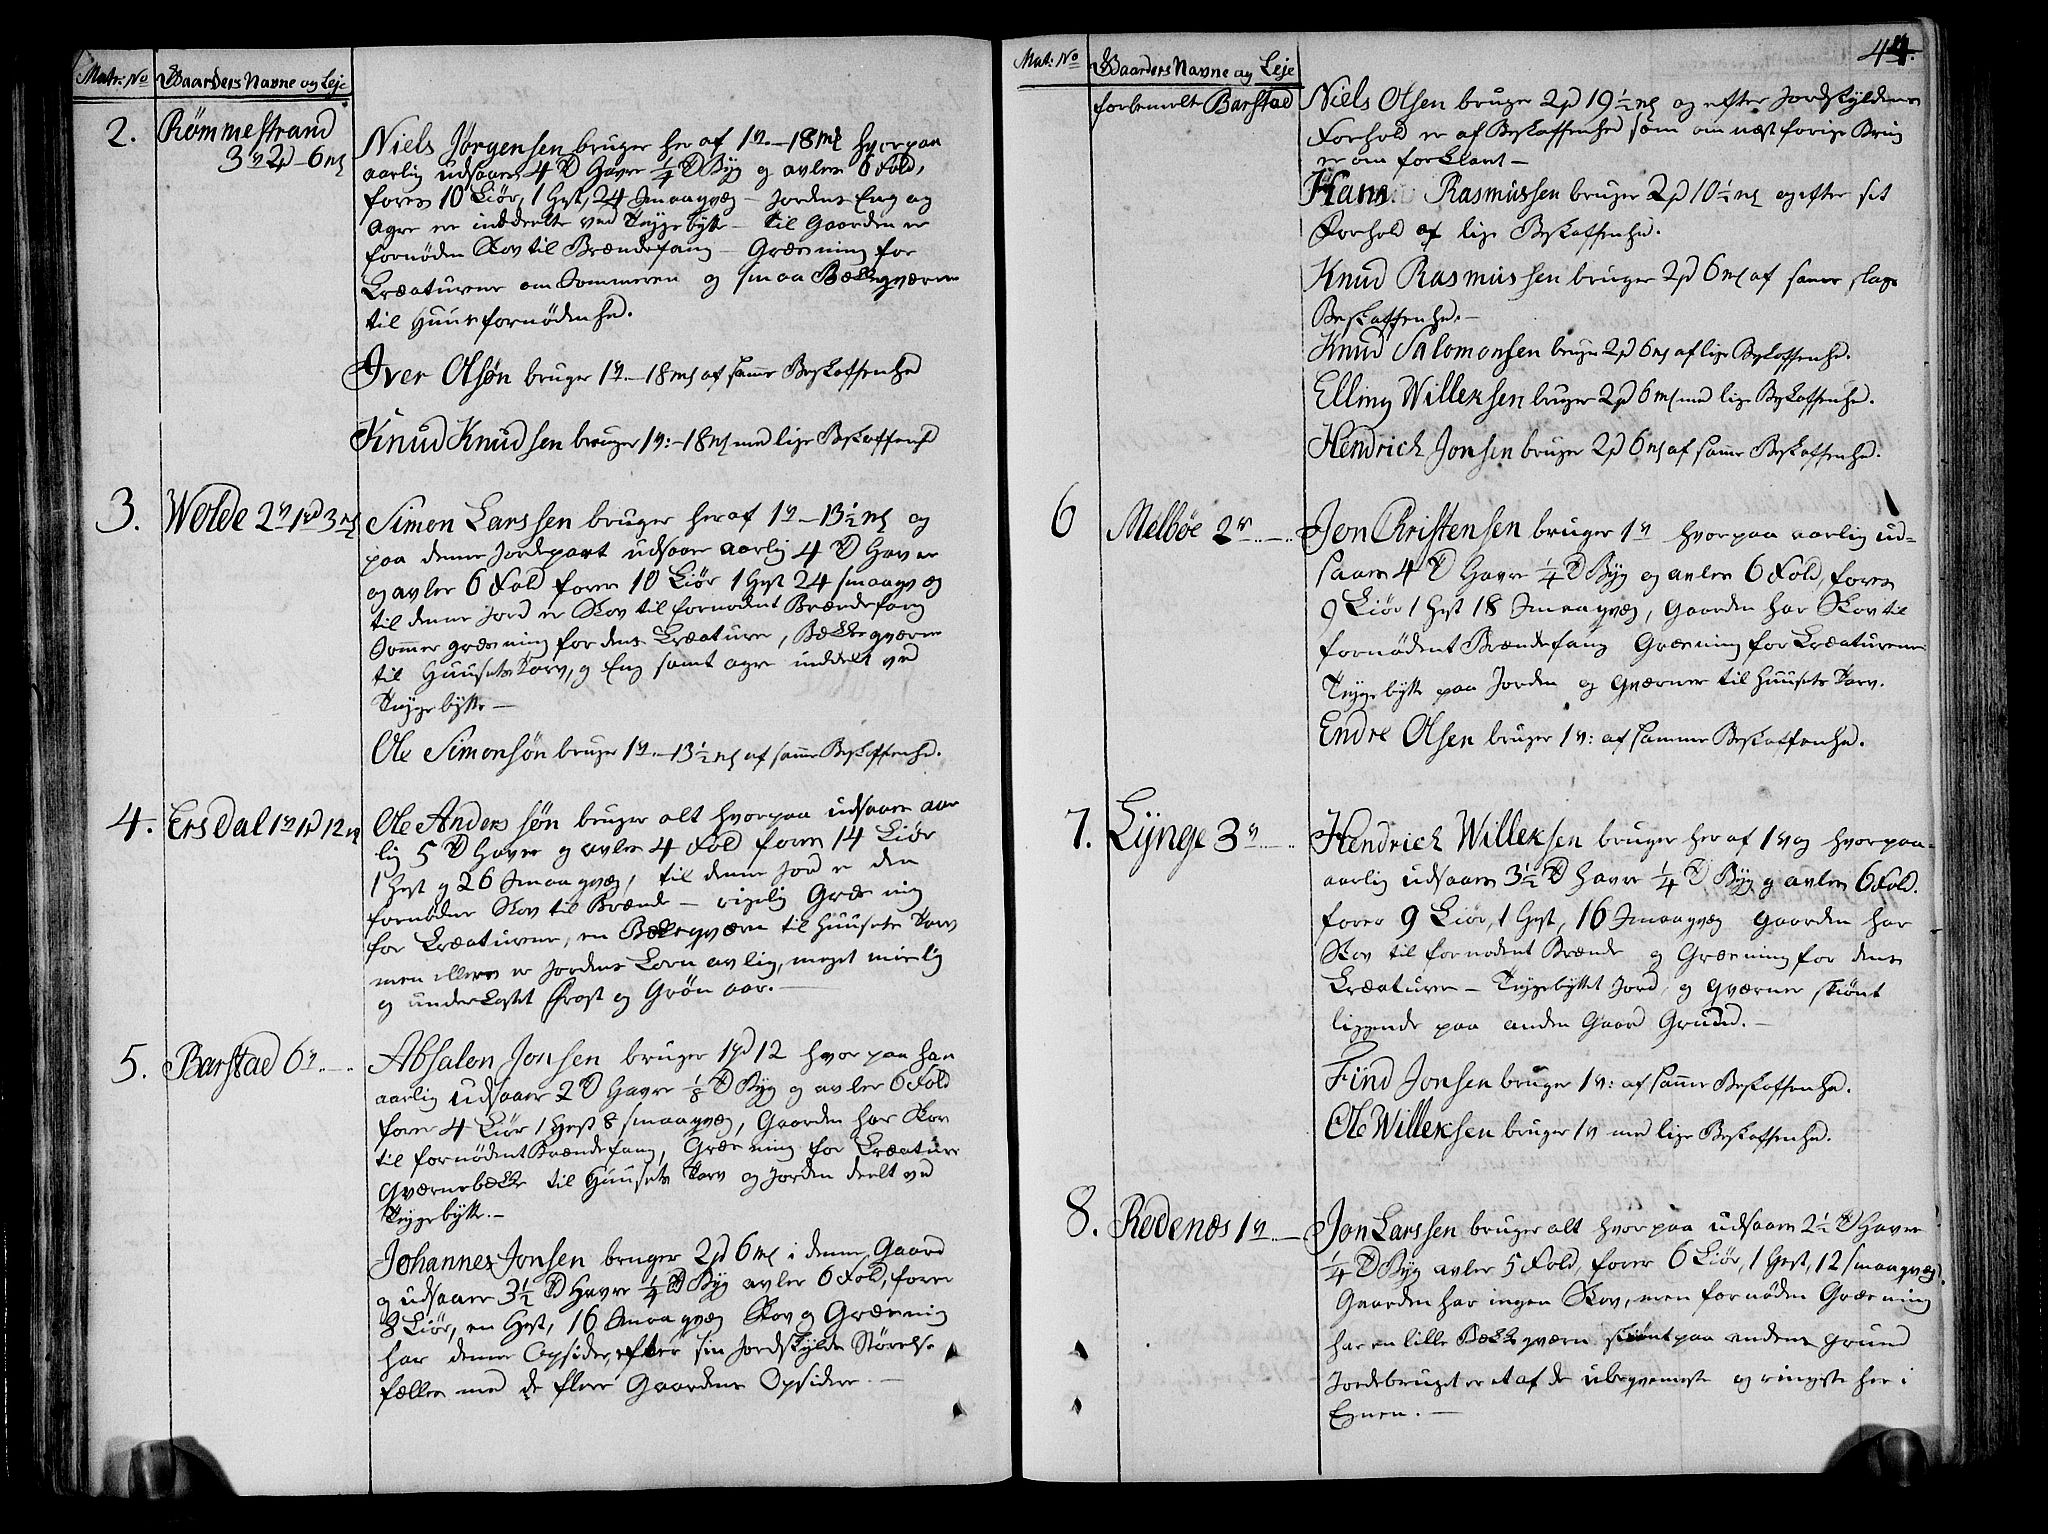 Matr: No Gaarders Navne og Leje
2. Römmestrand
3 v 2 pd - 6 mk
Niels Jørgensen bruger her af 1 v. - 18 mk hvorpaa
aarlig udsaaes 4 Td Havre 1/4 Td Byg og avler 6 Fold,
foder 10 Kiör, 1 Hest, 24 Smaaqvæg - Jordens Eng og
Agre er inddeelte ved Teigebytte - til Gaarden er
fornöden Skov til Brændefang - Græsning for
Creaturene om Sommeren og smaa Bække qværne
til Huus fornödenhed.
Iver Olsøn bruger 1 v. - 18 mk af samme Beskaffenhed
Knud Knudsen bruger 1 v: - 18 mk med lige Beskaffenhed
3. Wolde 2 v 1 pd 3 mk
Simon Larssen bruger her af 1 v - 13 1/2 mk og
paa denne Jordepart udsaaer aarlig 4 Td Havre
og avler 6 Fold foder 10 Kiör 1 Hest 24 smaaqvæg
til denne Jord er Skov til fornödent Brændefang
Sommer græsning for dens Creature, Bække qværne
til Huusets Tarv, og Eng samt agre inddelt ved
Teigebytte -
Ole Simonsøn bruger 1 v. - 13 1/2 mk af samme Beskaffenhed.
4. Ersdal 1 v 1 pd 12 mk
Ole Anders søn bruger alt hvorpaa udsaaes aar
lig 5 Td Havre og avler 4 Fold foder 14 Kiör
1 Hest og 26 Smaaqvæg, til denne Jord er den
fornödne Skov til Brænde - rigelig Græsning
for Creaturene, en Bækkeqværn til Huusets Tarv
men ellers er Jordens Korn avling, meget mislig
og underkastet Frost og Grön aar. -
5. Barstad 6 v
Absalon Jonsen bruger 1 pd 12 hvorpaa han
aarlig udsaaer 2 Td Havre 1/8 Td Byg og avler 6 Fold
foder 4 Kiör 1 Hest 8 smaaqvæg, Gaarden har Skov
til fornödent Brændefang, Græsning for Creature
Qværnebække til Huusets Tarv og Jorden deelt ved
Teigebytte. -
Johannes Jonsen bruger 2 pd 6 mk i denne Gaard
og udsaaer 3 1/2 Td Havre 1/4 Td Byg avler 6 Fold, foder
8 Kiör, en Hest, 16 Smaaqvæg Skov og Græsning
har denne Opsidder, efter sin Jordskylds Störrelse
fælles med de flere Gaardens Opsiddere. -
Mat: No Gaarders Navne og Leje
44.
forbemelte Barstad
Niels Olsen bruger 2 pd 19 1/2 mk og efter Jordskyldens
Forhold er af Beskaffenhed som om næst forige Brug
er om forklaret -
Hans Rasmussen bruger 2 pd 10 1/2 mk og efter sit
Forhold af lige Beskaffenhed.
Knud Rasmussen bruger 2 pd 6 mk af samme slags
Beskaffenhed. -
Knud Salomonsen bruger 2 pd 6 mk af lige Beskaffenhed.
Elling Willeksen bruger 2 pd 6 mk med lige Beskaffenhed.
Hendrich Jonsen bruger 2 pd 6 mk af samme Beskaffenhed.
6 Melböe 2 v
Jon Christensen bruger 1 v hvorpaa aarlig ud=
saaes 4 Td Havre 1/4 Td Byg og avler 6 Fold, foder
9 Kiör 1 Hest 18 Smaaqvæg, Gaarden har Skov til
fornödent Brændefang Græsning for Creaturene
Teigebytte paa Jorden og Qværner til Huusets Tarv.
Endre Olsen bruger 1 v: af samme Beskaffenhed.
7. Lÿnge 3 v
Hendrich Willeksen bruger her af 1 vog hvorpaa
aarlig udsaaes 3 1/2 Td Havre 1/4 Td Byg og avler 6 Fold.
foder 9 Kiör, 1 Hest, 16 Smaaqvæg Gaarden har
Skov til fornödent Brænde og Græsning for dens
Creature - Teigebyttet Jord, og Qværner skiönt
liggende paa anden Gaards Grund. -
Find Jonsen bruger 1 v: af samme Beskaffenhed.
Ole Willeksen bruger 1 v med lige Beskaffenhed.
8. Rodenæs 1 v
Jon Larssen bruger alt hvorpaa udsaaes 2 1/2 Td Havre
1/4 Td Byg avler 5 Fold, foder 6 Kiör, 1 Hest, 12 smaaqvæg.
Gaarden har ingen Skov, men fornöden Græsning
har en lille Bække qværn skiönt paa andens Grund
Jordebruget er et af de ubeqvemmeste og ringeste her i
Egnen. -